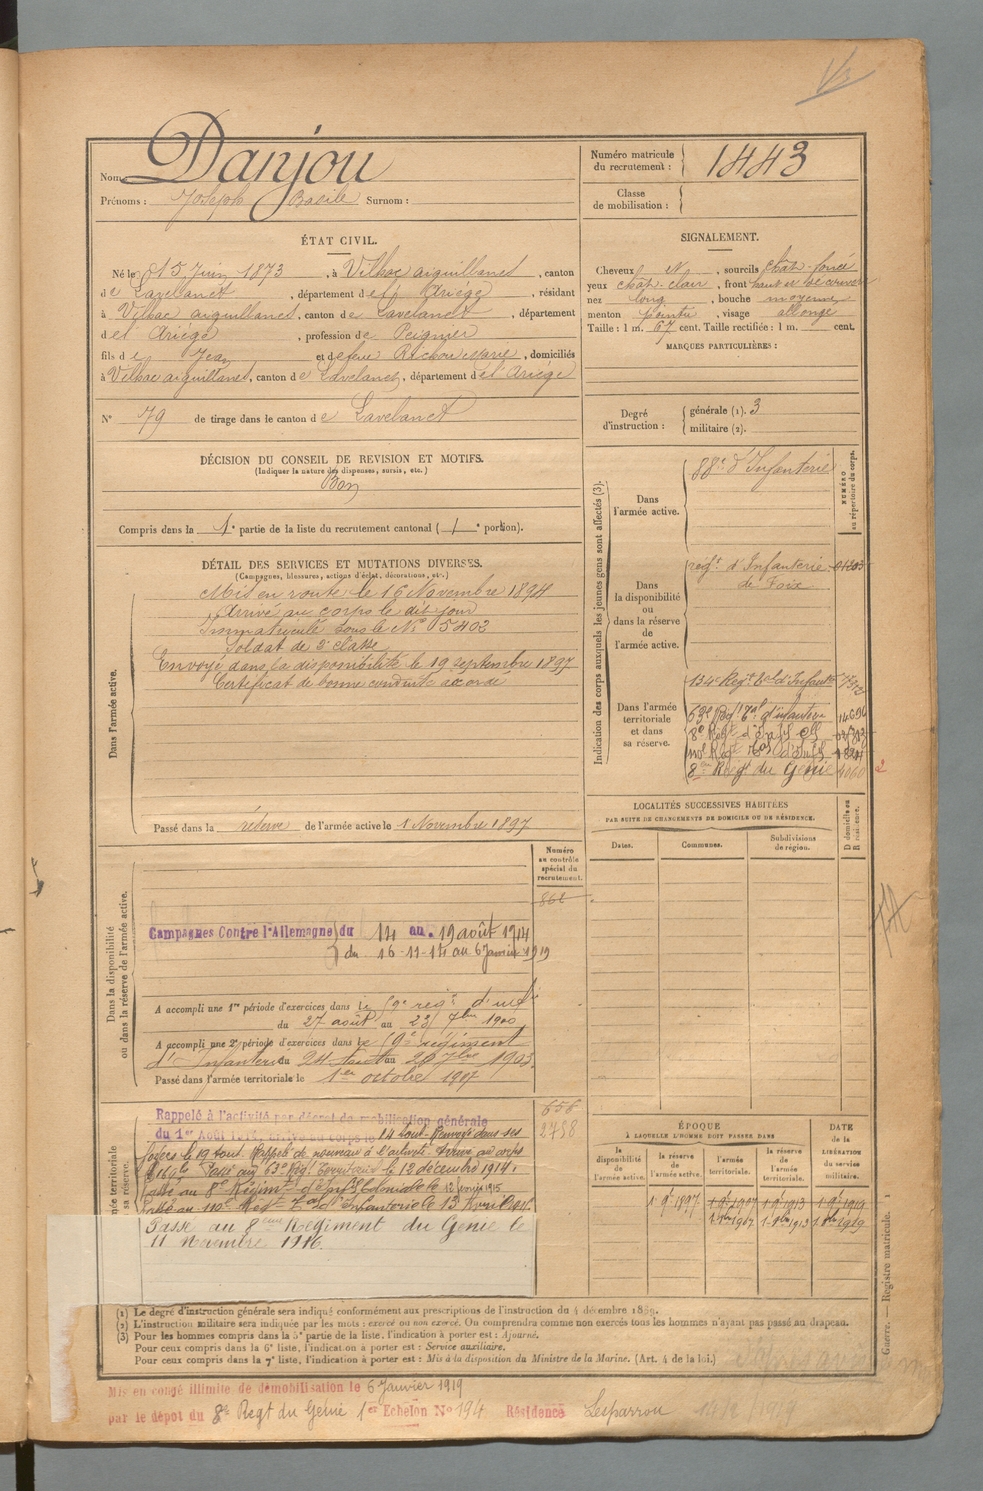 Nom : Danjou
Prénoms : Joseph Basile Surnom :
Numéro matricule du recrutement : 1443
Classe de mobilisation :
ÉTAT CIVIL.
Né le 15 Juin 1873, à Vilhac aiguillanes, canton
de Lavelanet, département de l'Ariége, résidant
à Vilhac aiguillanes, canton de Lavelanet, département
de l'Ariége, profession de Peignier
fils de Jean et de feue Rachou Marie, domiciliés
à Vilhac aiguillanes, canton de Lavelanet, département de l'Ariége
N° 79 de tirage dans le canton de Lavelanet
SIGNALEMENT.
Cheveux N, sourcils chât. foncé
yeux chât. clair, front haut et découvert
nez long, bouche moyenne
menton pointu, visage allongé
Taille : 1 m. 67 cent. Taille rectifiée : 1 m. cent.
MARQUES PARTICULIÈRES :
Degré d'instruction : générale (1). 3
militaire (2).
DÉCISION DU CONSEIL DE REVISION ET MOTIFS.
(Indiquer la nature des dispenses, sursis, etc.)
Bon
Compris dans la 1e partie de la liste du recrutement cantonal (1e portion).
DÉTAIL DES SERVICES ET MUTATIONS DIVERSES.
(Campagnes, blessures, actions d'éclat, décorations, etc.)
Dans l'armée active.
Mis en route le 16 Novembre 1894
Arrivé au corps le dit jour
Immatriculé sous le N° 5402
Soldat de 2e classe
Envoyé dans la disponibilité le 19 septembre 1897
Certificat de bonne conduite accordé
Passé dans la réserve de l'armée active le 1 Novembre 1897
Indication des corps auxquels les jeunes gens sont affectés (3).
NUMÉRO au répertoire du corps.
Dans l'armée active.
88e d'Infanterie
Dans la disponibilité ou dans la réserve de l'armée active.
régt. d'Infanterie
de Foix
Dans l'armée territoriale et dans sa réserve.
134e Régt Tal d'Infantie
63e Régt Tal d'infanterie 14694
8e Régt d'Inf Cle
110e Régt Tal d'Inf
8e Régt du Génie 2
LOCALITÉS SUCCESSIVES HABITÉES
PAR SUITE DE CHANGEMENTS DE DOMICILE OU DE RÉSIDENCE.
Dates.
Communes.
Subdivisions de région.
D domicile ou R résidence.
Dans la disponibilité ou dans la réserve de l'armée active.
Numéro au contrôle spécial du recrutement.
868
Campagnes Contre l'Allemagne du 14 au 19 août 1914
du 16-11-14 au 6 Janvier 1919
A accompli une 1re période d'exercices dans le 59e regt d'inf
du 27 août au 23 7bre 1900
A accompli une 2e période d'exercices dans le 59e régiment
d'Infanterie du 24 Aout au 20 7bre 1903
Passé dans l'armée territoriale le 1er octobre 1907
658
2758
Rappelé à l'activité par décret de mobilisation générale
du 1er Août 1914, arrivé au corps le 14 Aout. Renvoyé dans ses
foyers le 19 Aout. Rappelé de nouveau à l'activité. Arrivé au corps
le 16 9bre Passé au 63e Régt Territorial le 12 décembre 1914.
Passé au 8e Régiment d'Infie Coloniale le 12 février 1915
Passé au 110e Régt Tal d'Infanterie le 13 Avril 1915
Passé au 8ème Régiment du Génie le
11 Novembre 1916.
ÉPOQUE
À LAQUELLE L'HOMME DOIT PASSER DANS
la disponibilité de l'armée active.
la réserve de l'armée active.
l'armée territoriale.
la réserve de l'armée territoriale.
DATE de la LIBÉRATION du service militaire.
1 9bre 1897 1 9bre 1907 1 9bre 1913 1 9bre 1919
1 8bre 1907 1 8bre 1913 1 8bre 1919
(1) Le degré d'instruction générale sera indiqué conformément aux prescriptions de l'instruction du 4 décembre 1889.
(2) L'instruction militaire sera indiquée par les mots : exercé ou non exercé. On comprendra comme non exercés tous les hommes n'ayant pas passé au drapeau.
(3) Pour les hommes compris dans la 5e partie de la liste, l'indication à porter est : Ajourné.
Pour ceux compris dans la 6e liste, l'indication à porter est : Service auxiliaire.
Pour ceux compris dans la 7e liste, l'indication à porter est : Mis à la disposition du Ministre de la Marine. (Art. 4 de la loi.)
Guerre. — Registre matricule. 1
Mis en congé illimité de démobilisation le 6 Janvier 1919
par le dépôt du 8e Regt du Génie 1er Echelon N° 194 Résidence Lesparrou